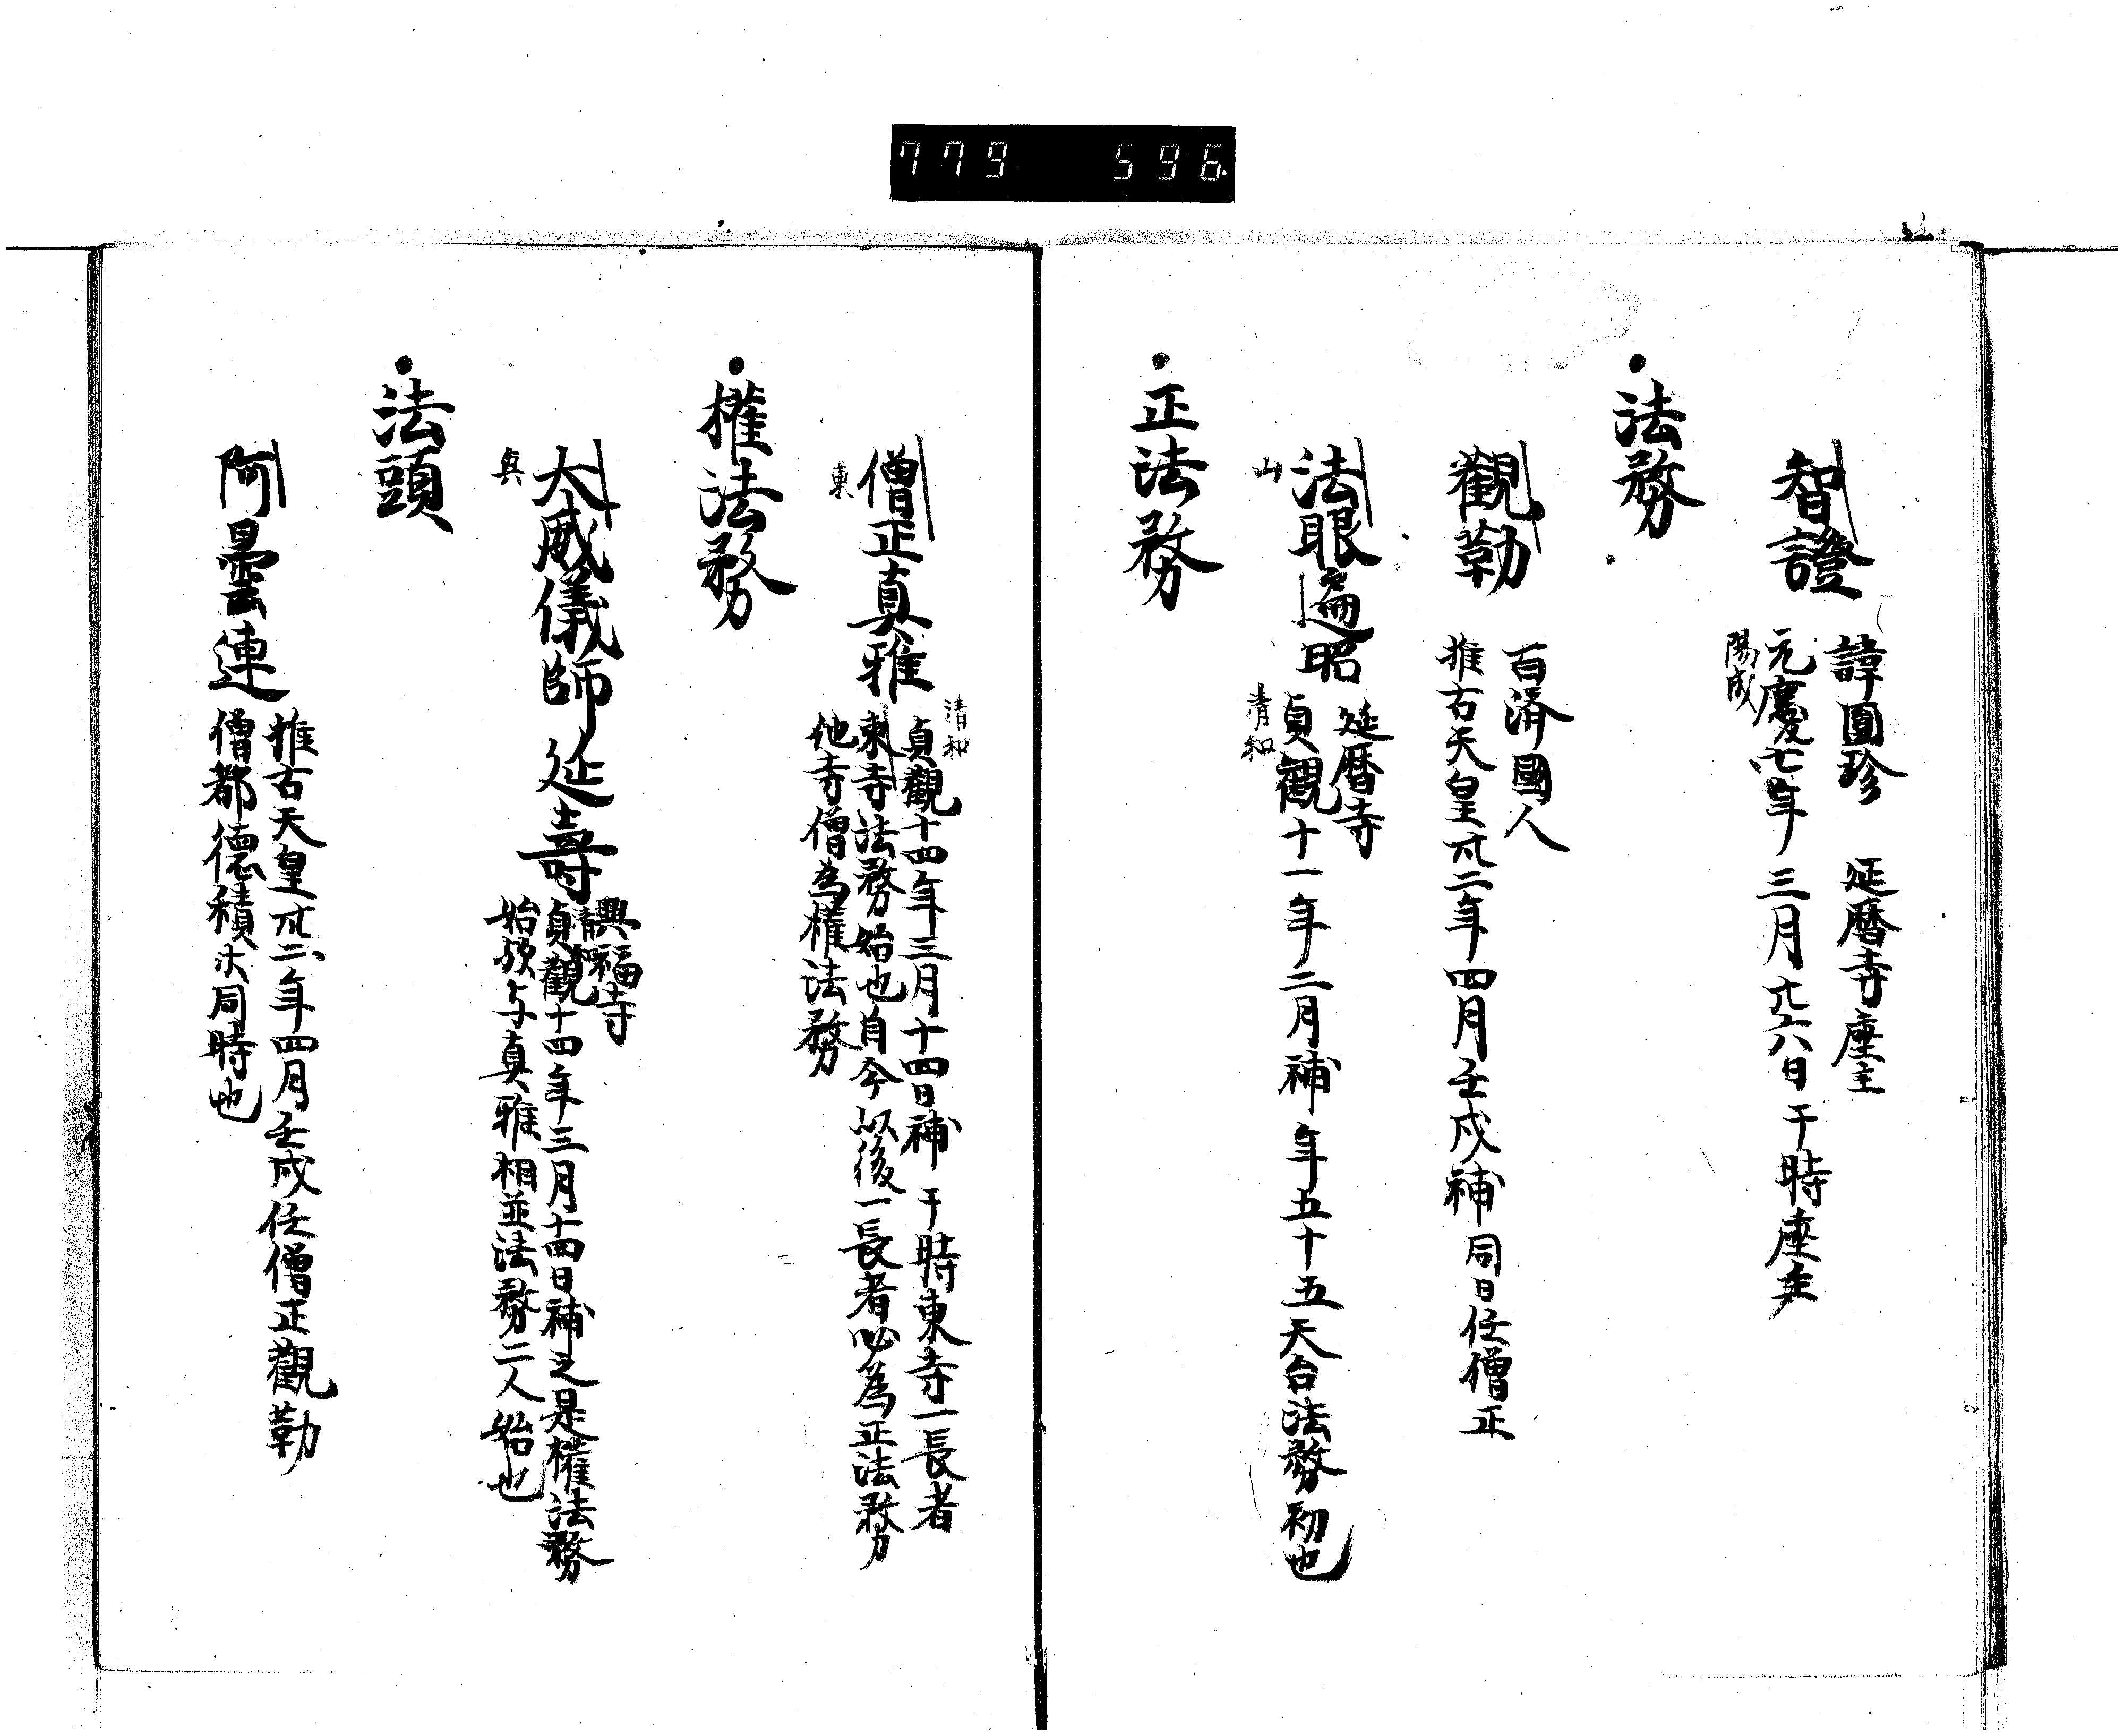 779 596
智證
諱圓珍 延暦寺座主
元慶七年三月廿六日于時座主
陽成
法務
觀勒
百済國人
推古天皇卅二年四月壬戌補同日任僧正
法眼遍昭
山
延暦寺
貞觀十一年二月補年五十五天台法務初也
清和
正法務
僧正真雅
東
清和
貞觀十四年三月十四日補于時東寺一長者
東寺法務始也自今以後一長者必為正法務
他寺僧為權法務
權法務
大威儀師延壽
興福寺
清和
貞觀十四年三月十四日補之是權法務
始須与真雅相並法務二人始也
法頭
阿曇連
推古天皇卅二年四月壬戌任僧正觀勒
僧都德積木同時也